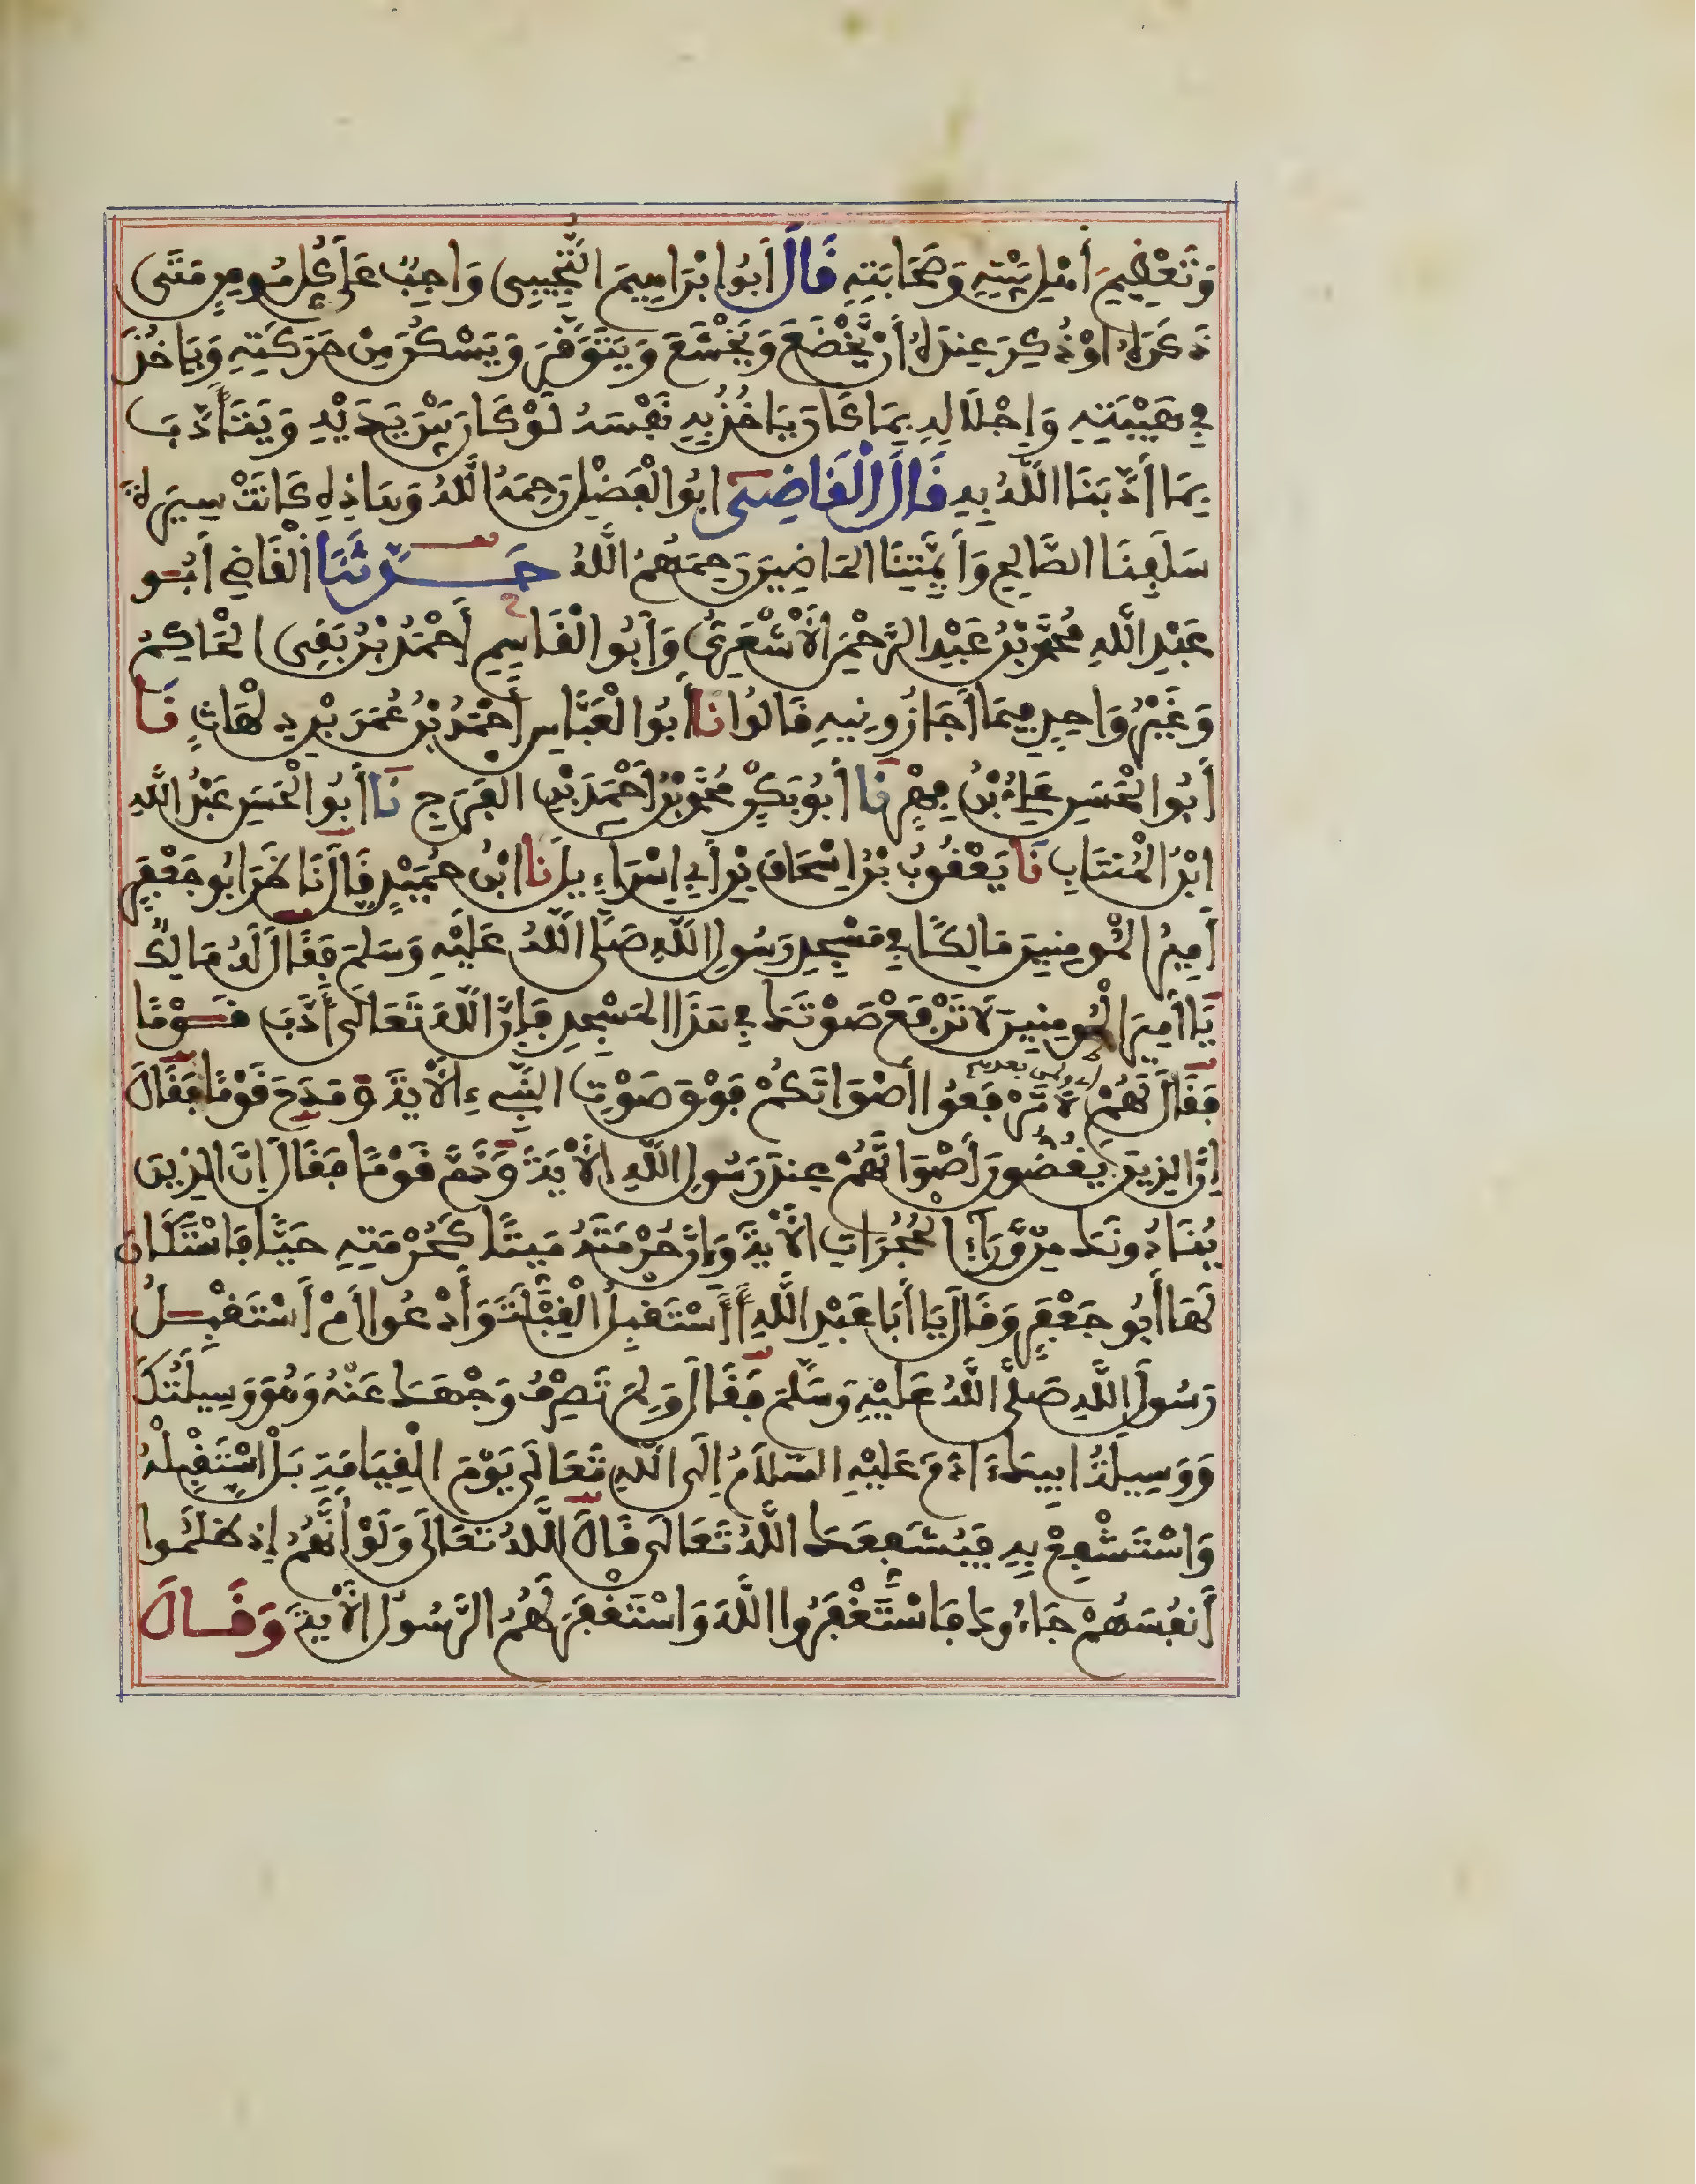 وَتَعْظِيمِ أَهْلِ بَيْتِهِ وَصَحَابَتِهِ قَالَ أَبُوا ابْرَاهِيمَ التُّجِيبِي وَاجِبٌ عَلَى كُلِّ مُومِنٍ مَتَى
ذَكَرَهُ اوْ ذُكِرَ عِندَهُ أَنْ يَّخْضَعَ وَيَخْشَعَ وَيَتَوَقَّرَ وَيَسْكُنَ مِنْ حَرَكَتِهِ وَيَاخُذَ
فِي هَيْبَتِهِ وَإِجْلَالِهِ بِمَا كَانَ يَاخُذُ بِهِ نَفْسَهُ لَوْ كَانَ بَيْنَ يَدَيْهِ وَيَتَأَدَّبَ
بِمَا أَدَّبَنَا اللَّهُ بِهِ قَالَ الْقَاضِى ابُوا الْفَضْلِ رَحِمَهُ اللَّهُ وَهَاذِهِ كَانَتْ سِيرَةَ
سَلَفِنَا الصَّالِحِ وَأَيِمَّتِنَا الْمَاضِينَ رَحِمَهُمُ اللَّهُ حَدَّثَنَا الْقَاضِي أَبُو
عَبْدِ اللَّهِ مُحَمَّدُ بْنُ عَبْدِ الرَّحْمَنِ الْأَشْعَرِيُّ وَأَبُوا الْقَاسِمِ أَحْمَدُ بْنُ بَقِي الْحَاكِمُ
وَغَيْرُ وَاحِدٍ فِيمَا أَجَازُونِيهِ قَالُوا نا أَبُوا الْعَبَّاسِ أَحْمَدُ بْنُ عُمَرَ بْنِ دِلْهَاثٍ نَا
أَبُوا الْحَسَنِ عَلِيُّ بْنُ فِهْرٍ نَا أَبُو بَكْرٍ مُحَمَّدُ بْنُ أَحْمَدَ بْنِ الْفَرَجِ نَا أَبُوا الْحَسَنِ عَبْدُ اللَّهِ
ابْنُ الْمُنتَابِ نَا يَعْقُوبُ بْنُ إِسْحَاقَ بْنِ أَبِي إِسْرَاءِيلَ نا ابْنُ حُمَيْدٍ قَالَ نَاظَرَ أَبُو جَعْفَرٍ
أَمِيرُ الْمُومِنِينَ مَالِكًا فِي مَسْجِدِ رَسُولِ اللَّهِ صَلَّى اللَّهُ عَلَيْهِ وَسَلَّمَ فَقَالَ لَهُ مَالِكٌ
يَا أَمِيرَ الْمُومِنِينَ لَا تَرْفَعْ صَوْتَكَ فِي هَذَا الْمَسْجِدِ فَإِنَّ اللَّهَ تَعَالَى أَدَّبَ قَوْمًا
فَقَالَ لَهُمْ لَا تَرْفَعُوا أَصْوَاتَكُمْ فَوْقَ صَوْتِ النَّبِيءِ الْأَيَةَ وَمَدَحَ قَوْمًا فَقَالَ
إِنَّ الذِينَ يَغُضُّونَ أَصْوَاتَهُمْ عِندَ رَسُولِ اللَّهِ الْأَيَةَ وَذَمَّ قَوْمًا فَقَالَ إِنَّ الذِينَ
يُنَادُونَكَ مِنْ وَّرَاءِ الْحُجُرَاتِ الْأَيَةَ وَإِنَّ حُرْمَتَهُ مَيِّتًا كَحُرْمَتِهِ حَيًّا فَاسْتَكَانَ
لَهَا أَبُو جَعْفَرٍ وَقَالَ يَا أَبَا عَبْدِ اللَّهِ أَأَسْتَقْبِلُ الْقِبْلَةَ وَأَدْعُوا أَمْ أَسْتَقْبِلُ
رَسُولَ اللَّهِ صَلَّى اللَّهُ عَلَيْهِ وَسَلَّمَ فَقَالَ وَلِمَ تَصْرِفُ وَجْهَكَ عَنْهُ وَهُوَ وَسِيلَتُكَ
وَوَسِيلَةُ ابِيكَ ءَادَمَ عَلَيْهِ السَّلَامُ إِلَى اللَّهِ تَعَالَى يَوْمَ الْقِيَامَةِ بَلْ اسْتَقْبِلْهُ
وَاسْتَشْفِعْ بِهِ فَيُشَفِّعَكَ اللَّهُ تَعَالَى قَالَ اللَّهُ تَعَالَى وَلَوْ أَنَّهُمْ إِذ ظَّلَمُوا
أَنفُسَهُمْ جَاءُوكَ فَاسْتَغْفَرُوا اللَّهَ وَاسْتَغْفَرَ لَهُمُ الرَّسُولُ الْأَيَةَ وَقَالَ